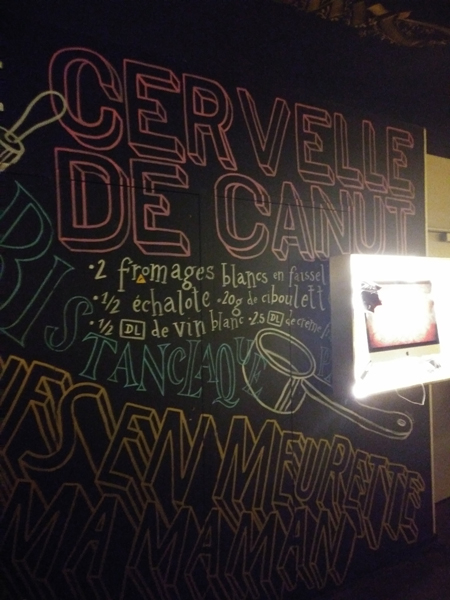 CERVELLE
DE CANUT
•2 fromages blancs en faissel
•1/2 échalote •20g de ciboulett
•1/2 DL de vin blanc •2.5 DL de creme
BIS TANCLAQUE
EN MEURETTE
MAMAMAN